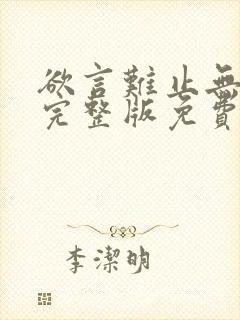 欲言難止無
完整版免費
李潔明